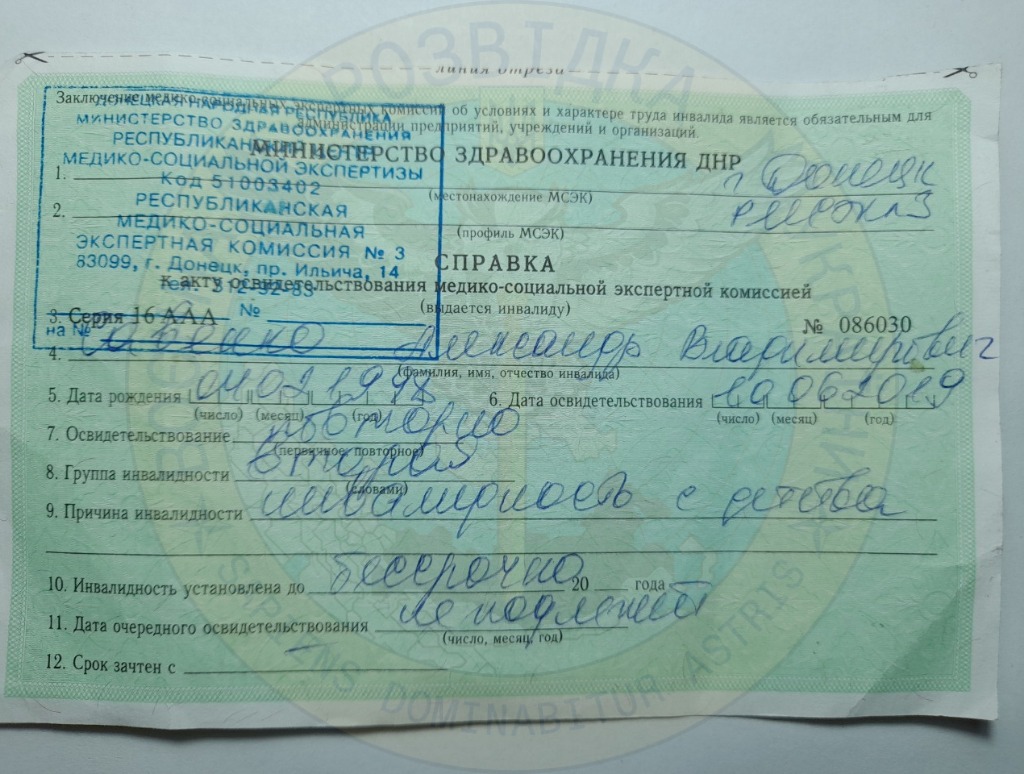 линия отреза
Заключение медико-социальных экспертных комиссий об условиях и характере труда инвалида является обязательным для
администрации предприятий, учреждений и организаций.
МИНИСТЕРСТВО ЗДРАВООХРАНЕНИЯ ДНР
ДОНЕЦКАЯ НАРОДНАЯ РЕСПУБЛИКА
МИНИСТЕРСТВО ЗДРАВООХРАНЕНИЯ
РЕСПУБЛИКАНСКИЙ
МЕДИКО-СОЦИАЛЬНОЙ ЭКСПЕРТИЗЫ
Код 51003402
РЕСПУБЛИКАНСКАЯ
МЕДИКО-СОЦИАЛЬНАЯ
ЭКСПЕРТНАЯ КОМИССИЯ № 3
83099, г. Донецк, пр. Ильича, 14
тел. 312-52-53
№
на №
1. г Донецк
(местонахождение МСЭК)
2.
(профиль МСЭК)
СПРАВКА
к акту освидетельствования медико-социальной экспертной комиссией
(выдается инвалиду)
3. Серия 16 ААА № 086030
4. Александр Владимирович
(фамилия, имя, отчество инвалида)
5. Дата рождения 04 02 1998 6. Дата освидетельствования 10 06 2019
(число) (месяц) (год) (число) (месяц) (год)
7. Освидетельствование повторно
(первичное, повторное)
8. Группа инвалидности вторая
(словами)
9. Причина инвалидности инвалидность с детства
10. Инвалидность установлена до бессрочно 20 года
11. Дата очередного освидетельствования не подлежит
(число, месяц, год)
12. Срок зачтен с
РОЗВІДКА
SAPIENS DOMINABITUR ASTRIS